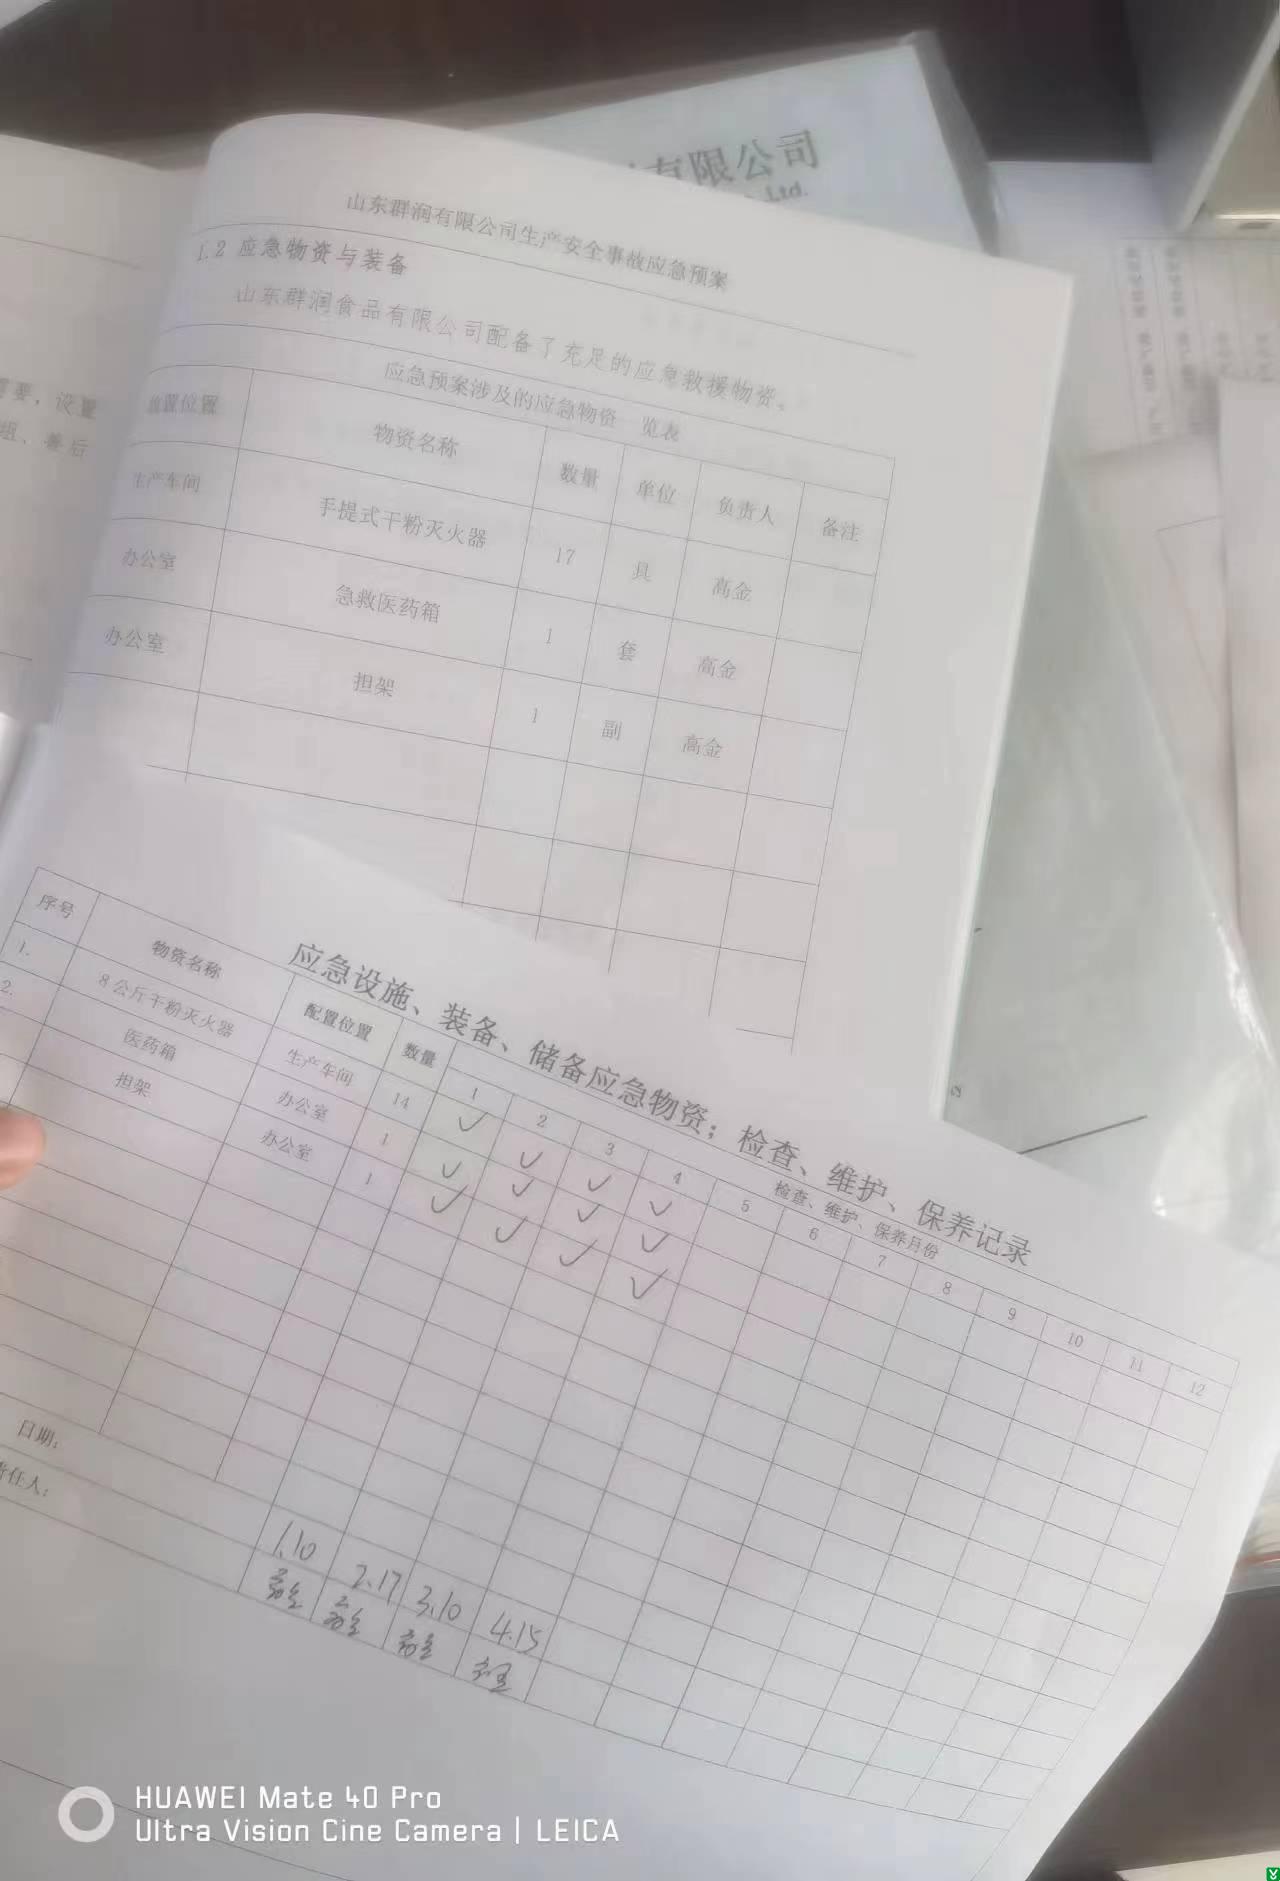 有限公司
Ltd.
山东群润有限公司生产安全事故应急预案
需要，设置
组、善后
1.2 应急物资与装备
山东群润食品有限公司配备了充足的应急救援物资。
应急预案涉及的应急物资 览表
放置位置 物资名称 数量 单位 负责人 备注
生产车间 手提式干粉灭火器 17 具 高金
办公室 急救医药箱 1 套 高金
办公室 担架 1 副 高金
应急设施、装备、储备应急物资；检查、维护、保养记录
序号 物资名称 配置位置 数量 检查、维护、保养月份
1 2 3 4 5 6 7 8 9 10 11 12
1. 8公斤干粉灭火器 生产车间 14 ✓ ✓ ✓ ✓
2. 医药箱 办公室 1 ✓ ✓ ✓ ✓
担架 办公室 1 ✓ ✓ ✓ ✓
日期： 1.10 2.17 3.10 4.15
责任人： 高金 高金 高金
HUAWEI Mate 40 Pro
Ultra Vision Cine Camera | LEICA